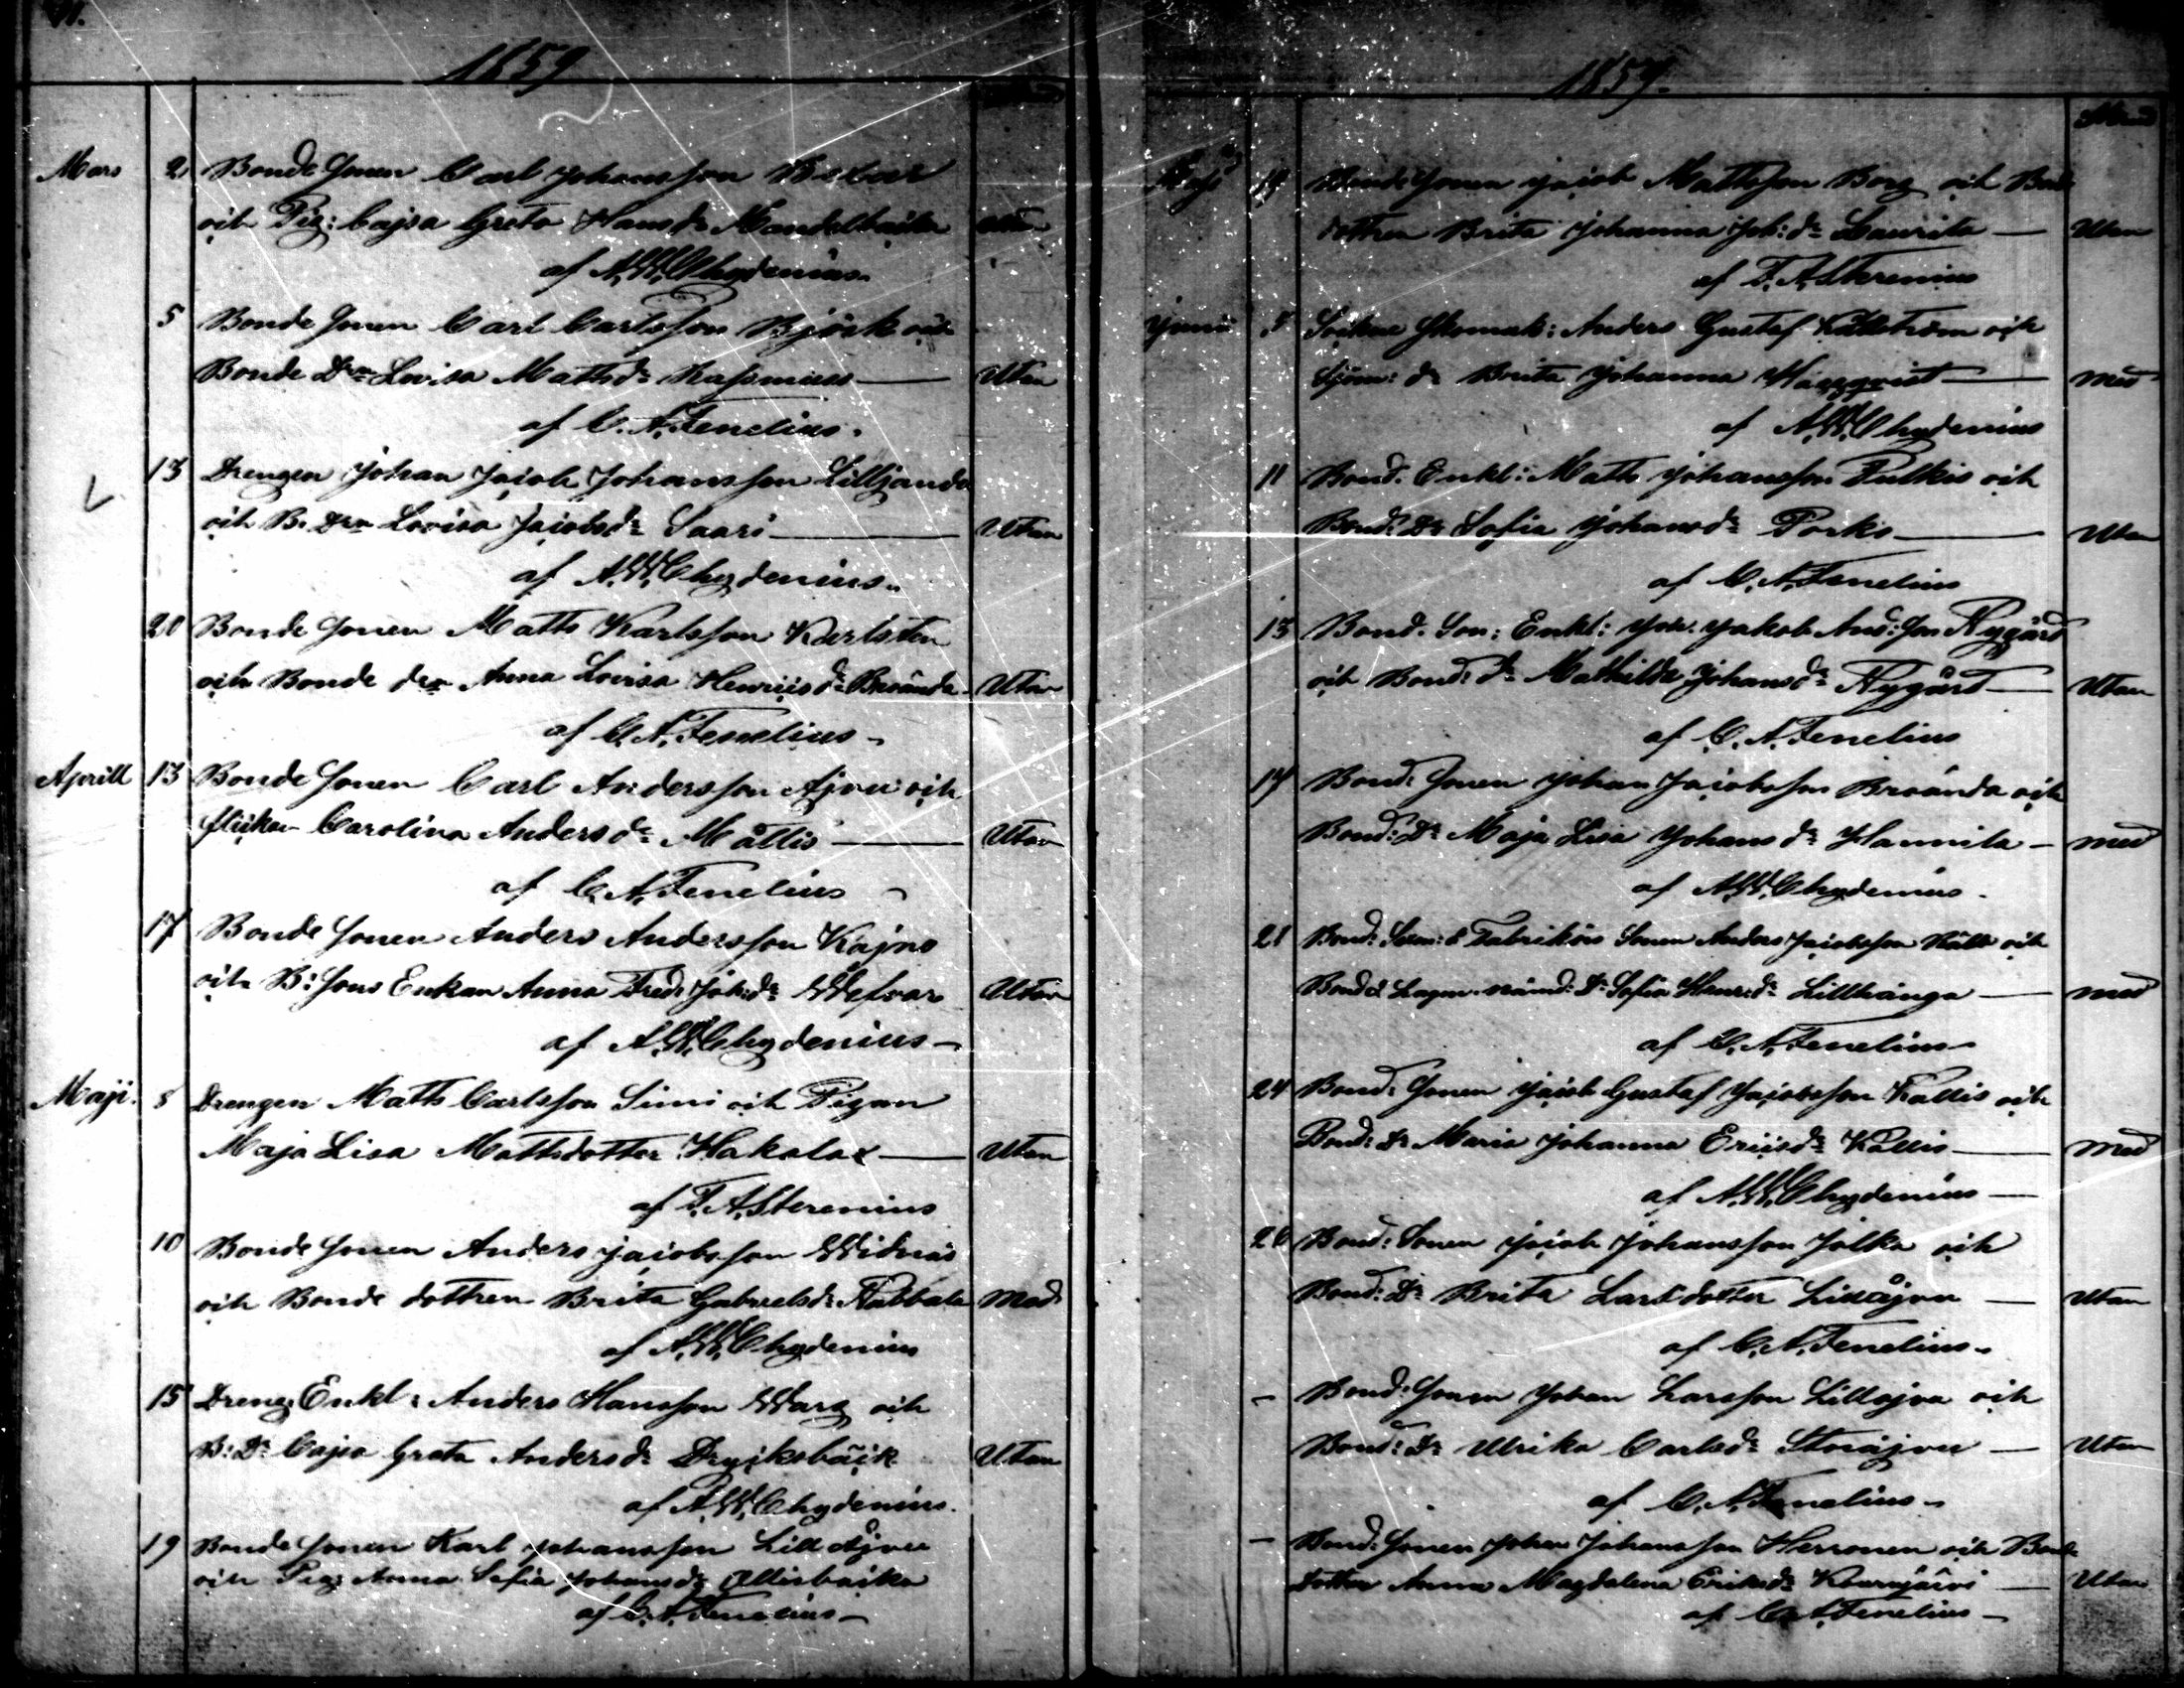 1859
Mars 2 Bonde Sonen Carl Johansson
och Pig: Cajsa Greta Hansdr Mandelbacka Utan
af A.W.Chydenius.
5 Bonde Sonen Carl Carlsson Björk och
Bonde Drn Lovisa Mattsdr Rassmus — Utan
af C.A.Fenelius.
13 Drengen Johan Jacob Johansson Lilljanda
och B. Drn Lovisa Jacobsdr Saari — Utan
af A.W.Chydenius.
20 Bonde Sonen Matts Karlsson Karlsten
och Bonde drn Anna Lovisa Henricsdr Brända Utan
af C.A.Fenelius —
Aprill 13 Bonde Sonen Carl Andersson Åjvu och
flickan Carolina Andersdr Mattis — Utan
af C.A.Fenelius —
17 Bonde Sonen Anders Andersson Kajno
och B: Sons Enkan Anna Fred: Joh:dr Wefvar Utan
af A.W.Chydenius —
Maji. 8 Drengen Matts Carlsson Simi och Pigan
Maja Lisa Mattsdotter Hakalax — Utan
af F.A.Sterenius
10 Bonde Sonen Anders Jacobsson Widnäs
och Bonde dottren Brita Gabrielsdr Nabbala Med
af A.W.Chydenius
15 Dreng Enkl: Anders Hansson Warg och
B: Dr Cajsa Greta Andersdr Dryicksbäck Utan
af A.W.Chydenius.
19 Bonde Sonen Karl Johansson Lill Åjvu
och Pig: Anna Sofia Johansdr Ollisbacka
af C.A.Fenelius —
1859.
Maji 19 Bonde Sonen Jacob Mattsson Borg och Bonde
dottren Brita Johanna Joh:dr Laurila — Utan
af F.A.Sterenius
Junii 5 Sockne Skomak: Anders Gustaf Källström och
Sjöm: dr Brita Johanna Haggqvist — med
af A.W.Chydenius
11 Bond. Enkl: Matts Johansson Pulkis och
Bond: Dr Sofia Johansdr Forks — Utan
af C.A.Fenelius
13 Bond. Son: Enkl: Joh. Jakob And:son Nygård
och Bond: dr Mathilda Johansdr Nygård — Utan
af C.A.Fenelius
17 Bond: Sonen Johan Jacobsson Brända och
Bond: Dr Maja Lisa Johansdr Hannila — med
af A.W.Chydenius.
21 Bond: Sexm: & Fabrikörs Sonen Anders Jacobsson Rätt och
Bond & Lagm. nämd: Dr Sofia Henr:dr Lillhanga — med
af C.A.Fenelius —
24 Bond: Sonen Jacob Gustaf Jacobsson Kallis och
Bond: Dr Maria Johanna Ericsdr Kallis — med
af A.W.Chydenius —
26 Bond: Sonen Jacob Johansson Jolka och
Bond: Dr Brita Larsdotter Lillåjvu — Utan
af C.A.Fenelius —
— Bond: Sonen Johan Larsson Lillåjvu och
Bond: Dr Ulrika Carlsdr Storåjvu — Utan
af C.A.Fenelius —
— Bond: Sonen Johan Johansson Herronen och Bonde
dottren Anna Magdalena Eriksdr Kourujärvi — Utan
af C.A.Fenelius —